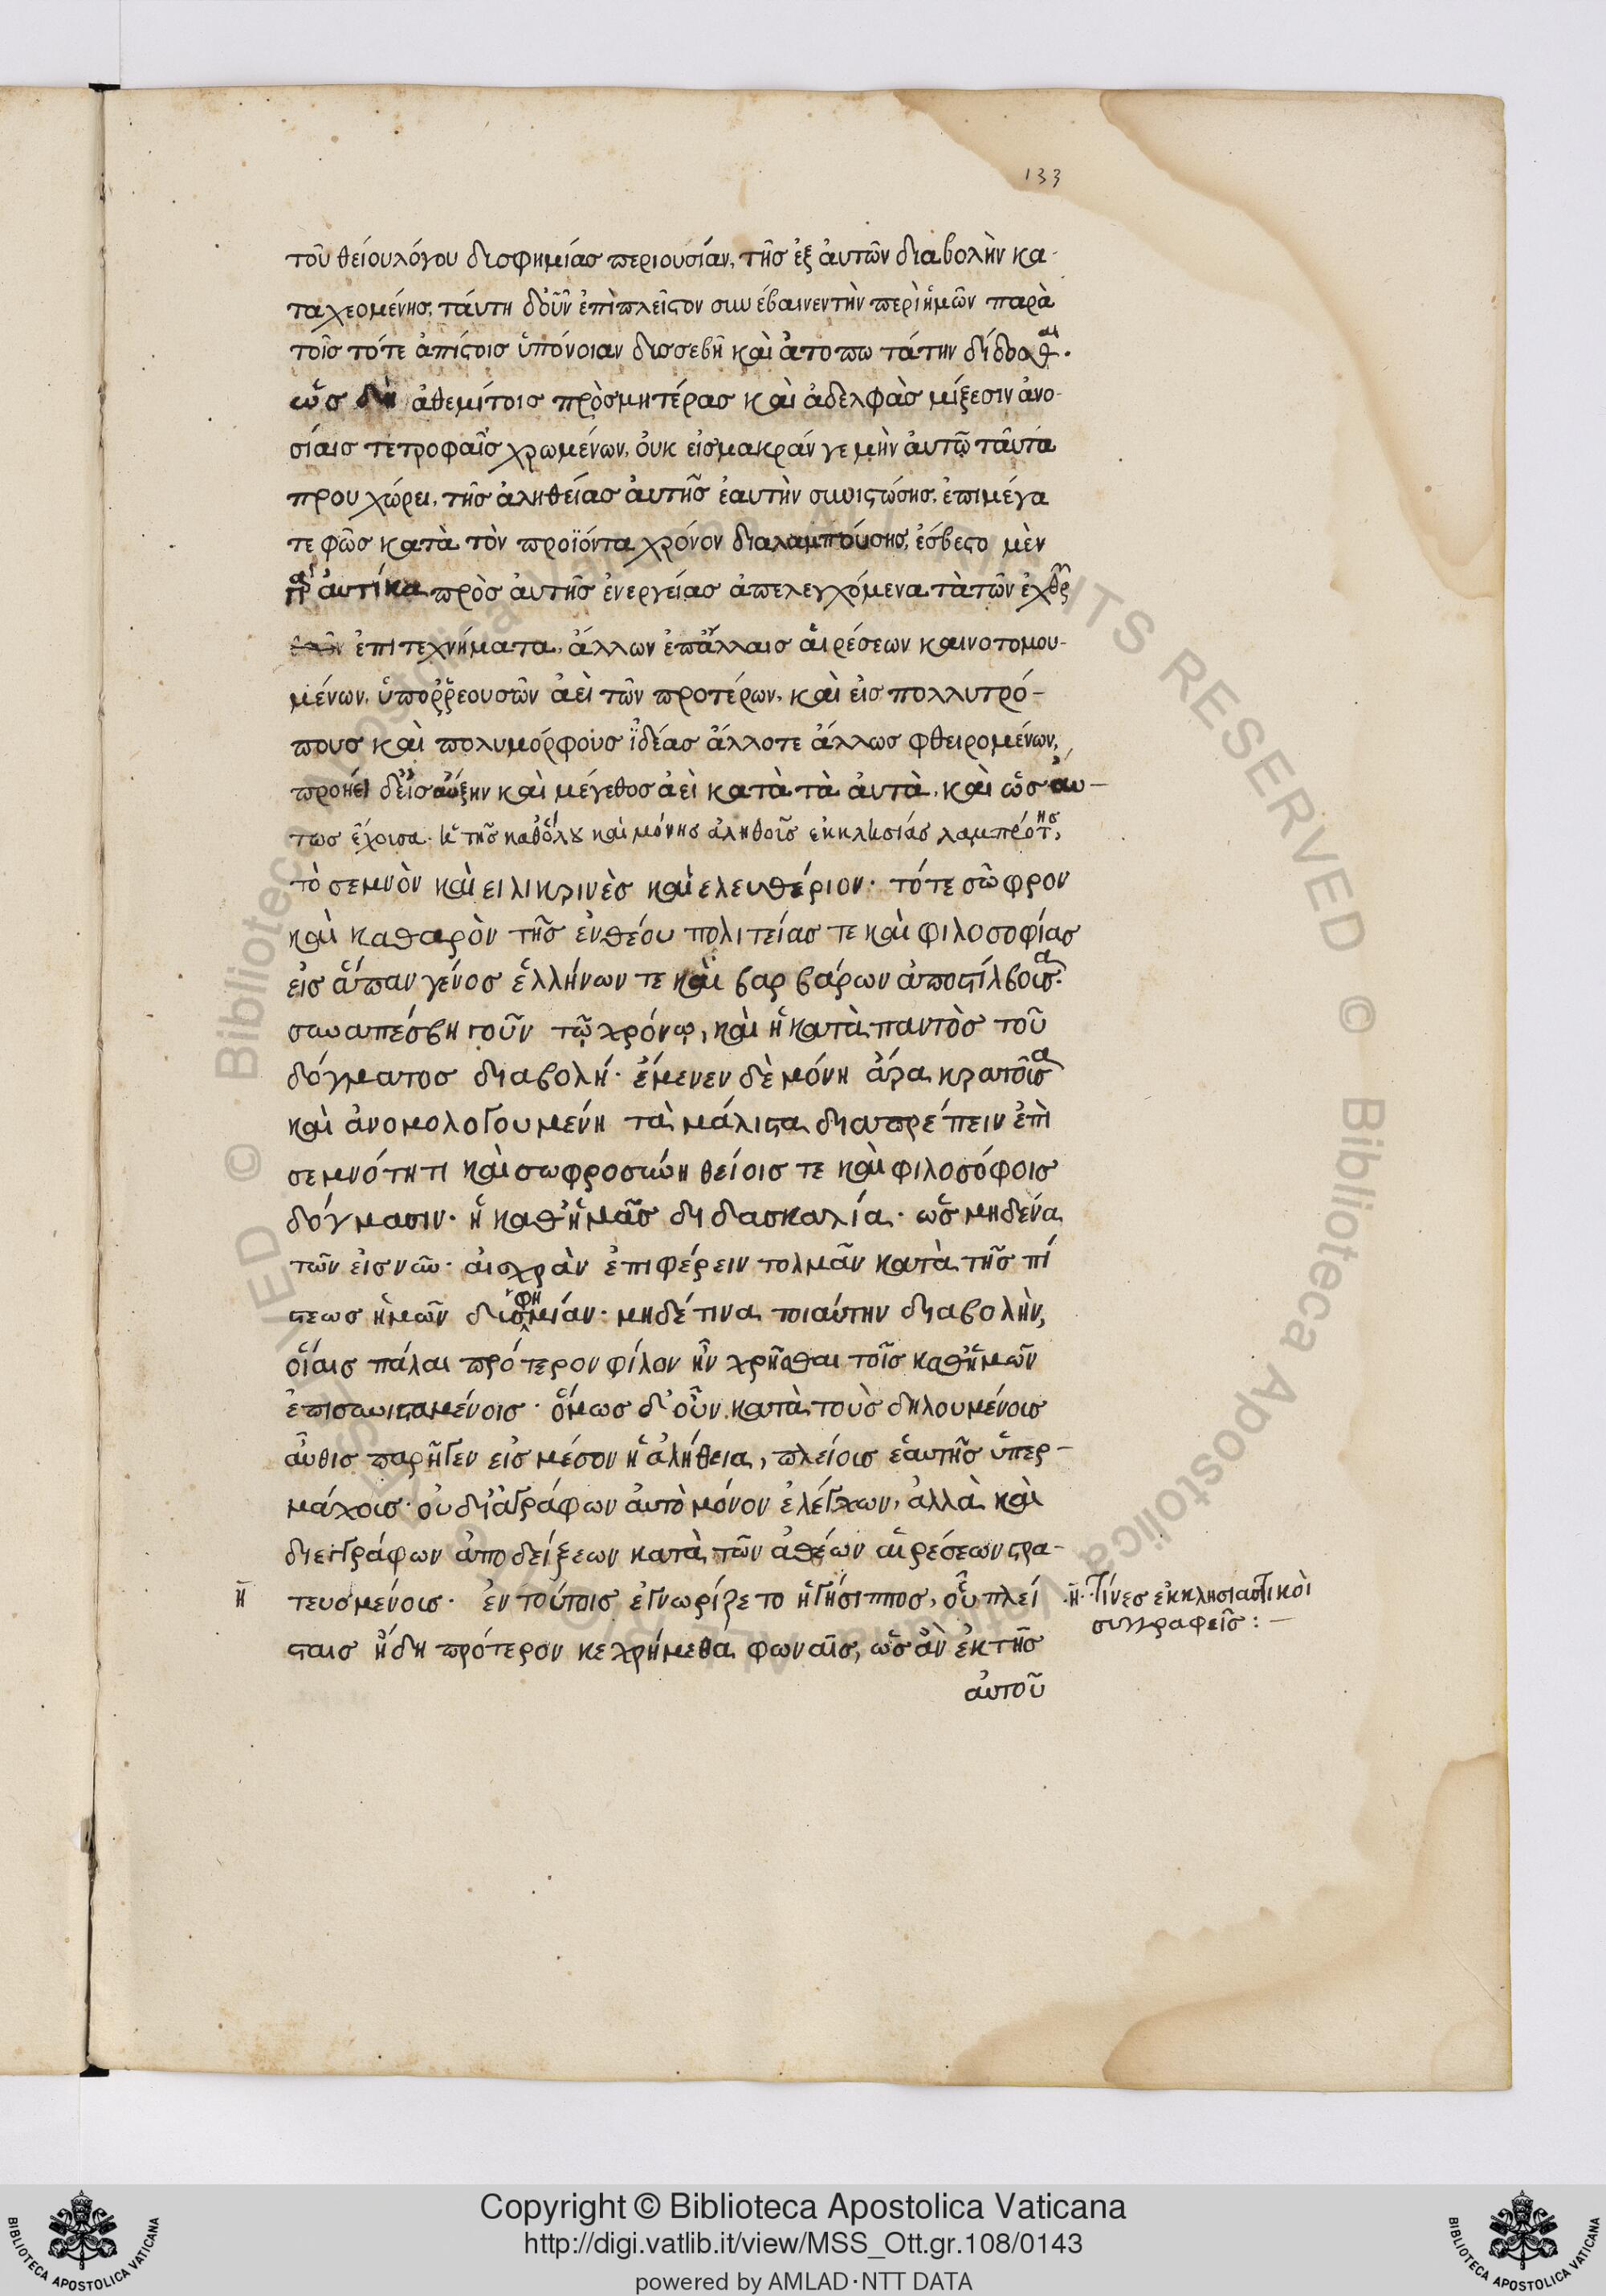 133
τοῦ θείου λόγου δυσφημίας περιουσίαν, τῆς ἐξ ἀυτῶν διαβολὴν κα-
ταχεομένης, τάυτη δ᾽ οὖν ἐπὶ πλεῖστον συνέβαινεν τὴν περὶ ἡμῶν παρὰ
τοῖς τότε ἀπίστοις ὑπόνοιαν δυσσεβῆ καὶ ἀτοπωτάτην διδοσθαι.
ὡς δὴ ἀθεμίτοις πρὸς μητέρας καὶ ἀδελφὰς μίξεσιν ἀνο-
σίαις τε τροφαῖς χρωμένων, ὀυκ εἰς μακράν γε μὴν ἀυτῷ ταῦτα
προυχώρει, τῆς ἀληθείας ἀυτῆς ἑαυτὴν συνιστώσης, ἐπὶ μέγα
τε φῶς κατὰ τὸν προϊόντα χρόνον διαλαμπούσης, ἐσβεστο μὲν
παραυτίκα πρὸς ἀυτῆς ἐνεργείας ἀπελεγχόμενα τὰ τῶν ἐχθρῶν
ἐπιτεχνήματα, ἄλλων ἐπ᾽ ἄλλαις ἁιρέσεων καινοτομου-
μένων, ὑπορῤεουσῶν ἀεὶ τῶν προτέρων, καὶ εἰς πολλυτρό-
πους καὶ πολυμόρφους ἰδέας ἄλλοτε ἄλλως φθειρομένων,
προήει δ᾽ εἰς αὔξην καὶ μέγεθος ἀεὶ κατὰ τὰ ἀυτὰ, καὶ ὡς ἀυ-
τως ἔχουσα. ἡ τῆς καθόλου καὶ μόνης ἀληθοῦς ἐκκλησίας λαμπρότης,
τὸ σεμνὸν καὶ ειλικρινὲς καὶ ελευθέριον. τό τε σῶφρον
καὶ καθαρὸν τῆς ἐνθέου πολιτείας τε καὶ φιλοσοφίας
εἰς ἅπαν γένος ἑλλήνων τε καὶ βαρβάρων ἀποστίλβουσα.
συναπέσβη γοῦν τῷ χρόνῳ, καὶ ἡ κατὰ παντὸς τοῦ
δόγματος διαβολή. ἔμενεν δὲ μόνη ἄρα κρατοῦσα
καὶ ἀνομολογουμένη τὰ μάλιστα διαπρέπειν ἐπὶ
σεμνότητι καὶ σωφροσύνη θείοις τε καὶ φιλοσόφοις
δόγμασιν. ἡ καθ᾽ ἡμᾶς διδασκαλία. ὡς μηδένα
τῶν εἰς νῦν. ἀισχρὰν ἐπιφέρειν τολμᾶν κατὰ τῆς πί
στεως ἡμῶν δυσφημίαν. μηδέ τινα τοιαύτην διαβολὴν,
οἵαις πάλαι πρότερον φίλον ἦν χρῆσθαι τοῖς καθ᾽ ἡμῶν
ἐπισυνισταμένοις. ὅμως δ᾽ οὖν κατὰ τοὺς δηλουμένους
αὖθις παρῆγεν εἰς μέσον ἡ ἀλήθεια, πλείους ἑαυτῆς ὑπερ-
μάχους. οὐ δι᾽ ἀγράφων ἀυτὸ μόνον ἐλέγχων, ἀλλὰ καὶ
δι εγγράφων ἀποδείξεων κατὰ τῶν ἀθέων αἱρέσεων στρα-
η τευσμένους. ἐν τούτοις ἐγνωρίζετο ἡγήσιππος, οὗ πλεί
σταις ἤδη πρότερον κεχρήμεθα φωναῖς, ὡς ἂν ἐκ τῆς
αὐτοῦ
η. Τίνες ἐκκλησιαστικοὶ
συγγραφεῖς : —
Copyright © Biblioteca Apostolica Vaticana
http://digi.vatlib.it/view/MSS_Ott.gr.108/0143
powered by AMLAD·NTT DATA